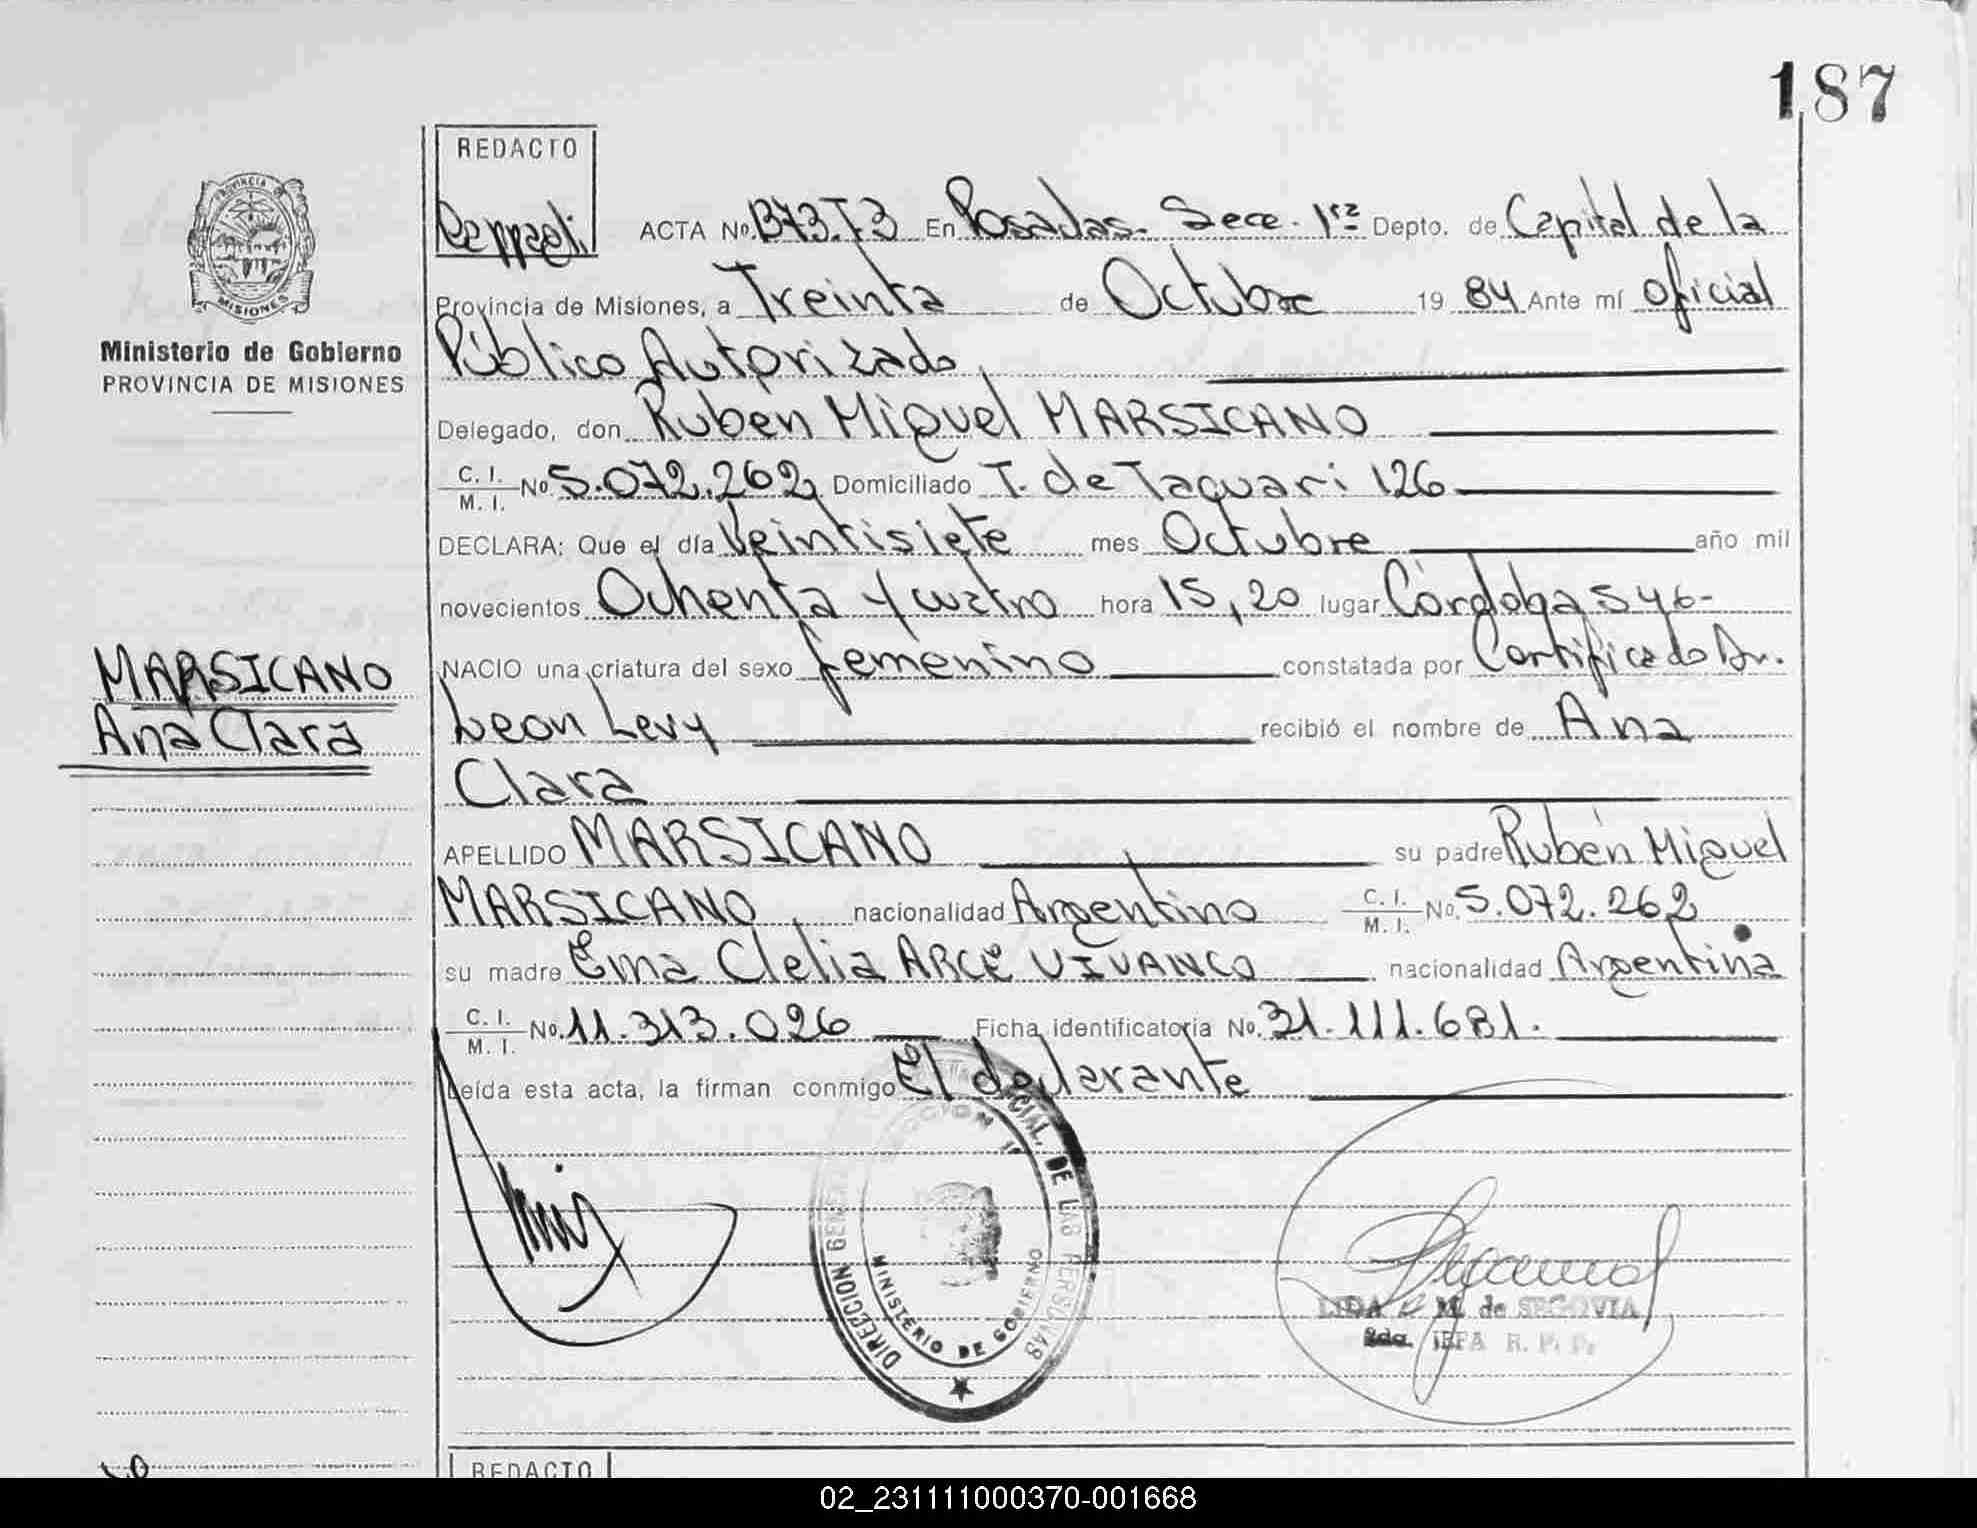 187
REDACTO
PROVINCIA DE
MISIONES
Ministerio de Gobierno
PROVINCIA DE MISIONES
MARSICANO
Ana Clara
ACTA No. B73.T3 En Posadas. Secc. 1ra Depto. de Capital de la
Provincia de Misiones, a Treinta de Octubre 19 84 Ante mí Oficial
Público Autorizado
Delegado, don Ruben Miguel MARSICANO
C. I. / M. I. No 5.072.262 Domiciliado T. de Taquari 126
DECLARA: Que el día Veintisiete mes Octubre año mil
novecientos Ochenta y cuatro hora 15,20 lugar Córdoba 546-
NACIO una criatura del sexo femenino constatada por Certificado Dr.
Leon Levy recibió el nombre de Ana
Clara
APELLIDO MARSICANO su padre Rubén Miguel
MARSICANO, nacionalidad Argentino C. I. / M. I. No. 5.072.262
su madre Ema Clelia ARCE VIVANCO nacionalidad Argentina
C. I. / M. I. No. 11.313.026 Ficha identificatoria No. 31.111.681.
Leída esta acta, la firman conmigo El declarante
DIRECCION GENERAL DE LAS PERSONAS
MINISTERIO DE GOBIERNO
LIDA M. de SEGOVIA
2da. JEFA R. P. P.
REDACTO
02_231111000370-001668